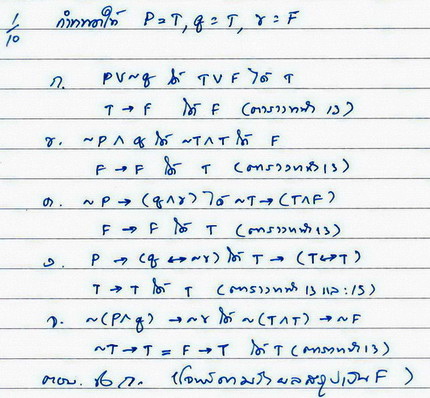 1/10 กำหนดให้ P = T, q = T, r = F
ก. P∨~q ได้ T∨F ได้ T
T → F ได้ F (ตารางหน้า 13)
ข. ~P∧q ได้ ~T∧T ได้ F
F → F ได้ T (ตารางหน้า 13)
ค. ~P → (q∧r) ได้ ~T → (T∧F)
F → F ได้ T (ตารางหน้า 13)
ง. P → (q ↔ ~r) ได้ T → (T↔T)
T → T ได้ T (ตารางหน้า 13 และ 15)
จ. ~(P∧q) → ~r ได้ ~(T∧T) → ~F
~T → T = F → T ได้ T (ตารางหน้า 13)
ตอบ ข้อ ก. (โจทย์ถามว่าผลสรุปเป็น F)